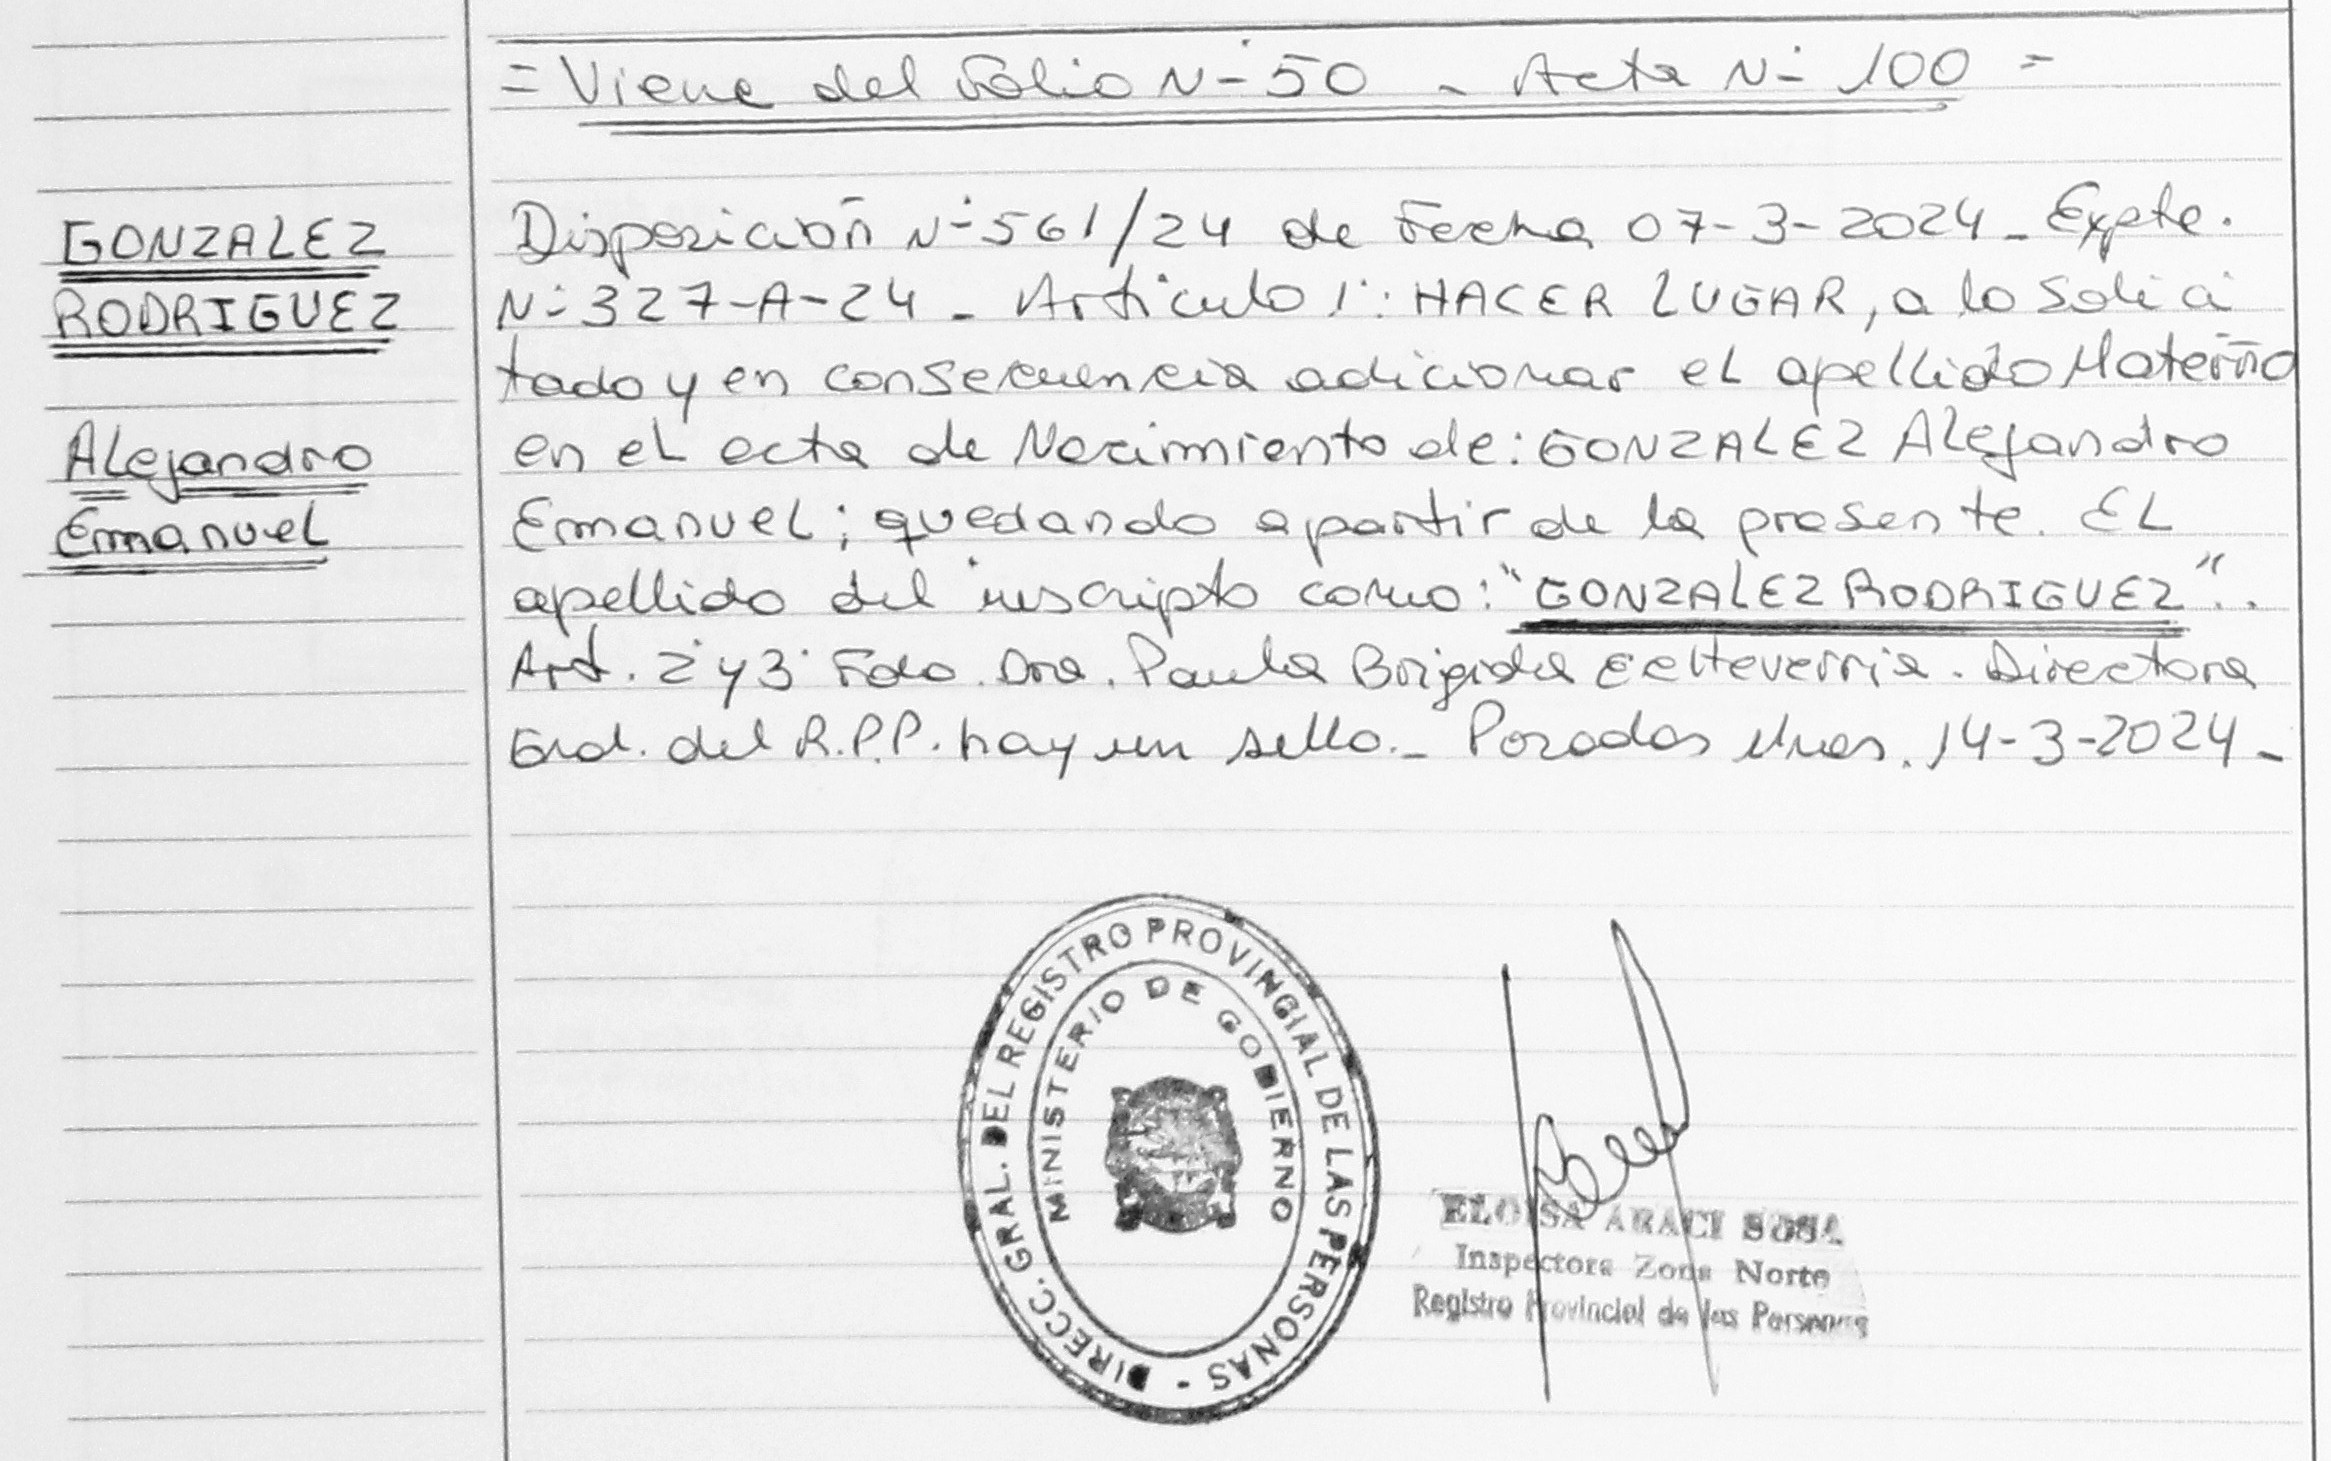 = Viene del Folio N° 50 - Acta N° 100 =
GONZALEZ
RODRIGUEZ
Alejandro
Emanuel
Disposición N° 561/24 de Fecha 07-3-2024 - Expte.
N° 327-A-24 - Articulo 1°: HACER LUGAR, a lo solici
tado y en consecuencia adicionar el apellido Materno
en el acta de Nacimiento de: GONZALEZ Alejandro
Emanuel; quedando a partir de la presente. El
apellido del inscripto como: "GONZALEZ RODRIGUEZ".
Art. 2° y 3° Fdo. Dra. Paula Brigida Echeverria. Directora
Gral. del R.P.P. hay un sello.- Posadas Mnes. 14-3-2024 -
DIRECC. GRAL. DEL REGISTRO PROVINCIAL DE LAS PERSONAS -
MINISTERIO DE GOBIERNO
ELOISA ARACI SOSA
Inspectora Zona Norte
Registro Provincial de las Personas